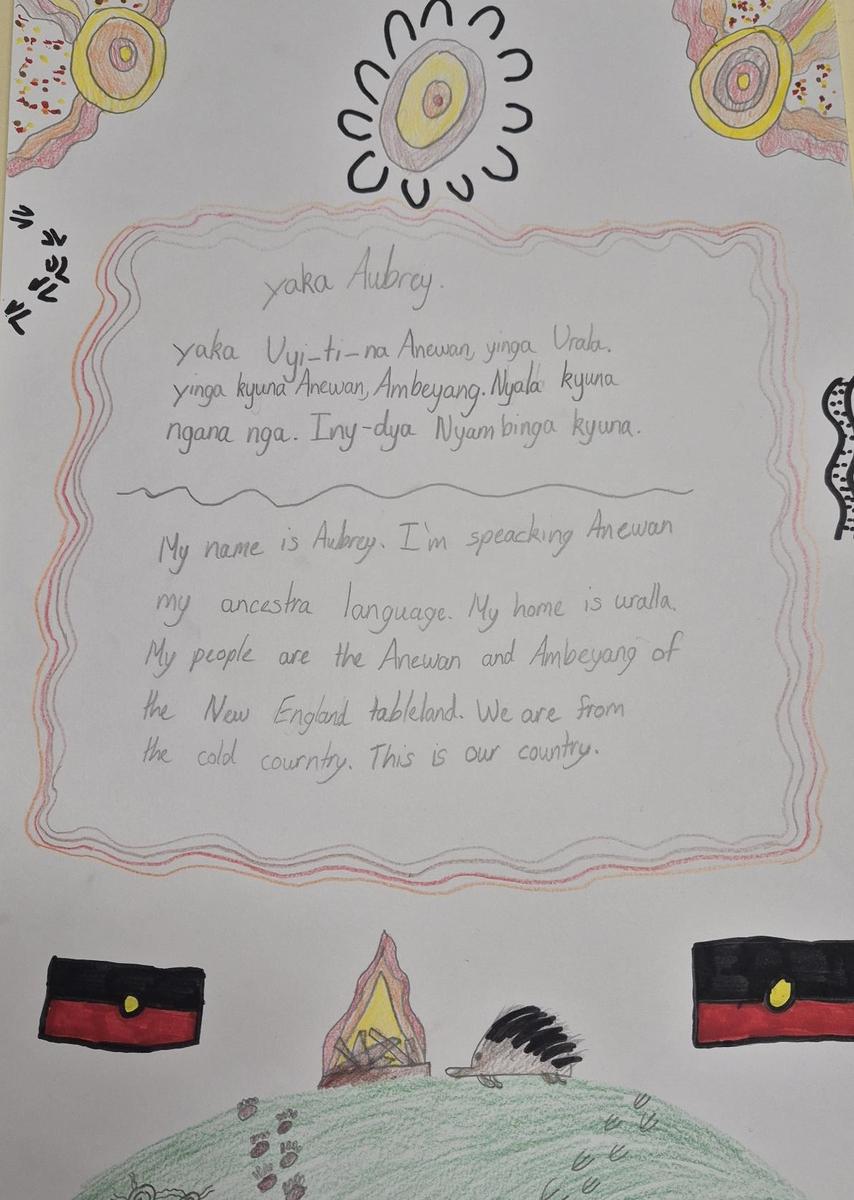 yaka Aubrey.
yaka Uyi-ti-na Anewan, yinga Urala.
yinga kyuna Anewan, Ambeyang. Nyala kyuna
ngana nga. Iny-dya Nyambinga kyuna.
My name is Aubrey. I'm speacking Anewan
my ancestra language. My home is uralla.
My people are the Anewan and Ambeyang of
the New England tableland. We are from
the cold courntry. This is our country.